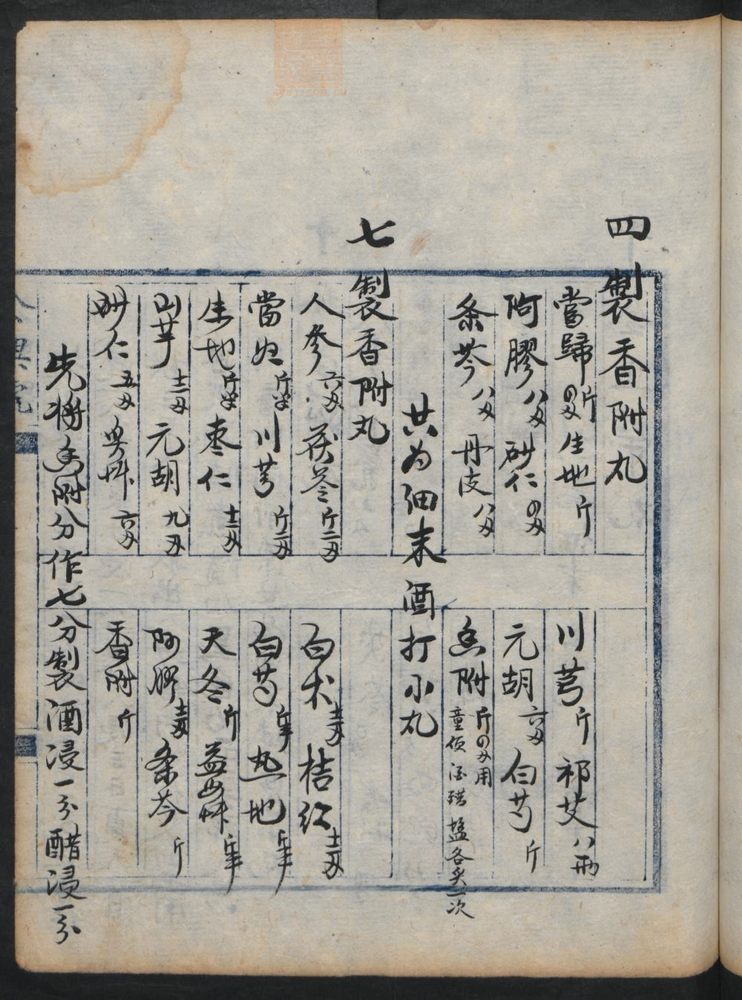 四製香附丸
當歸 斤四两 生地 斤 川芎 斤 祁艾 八两
阿膠 八两 砂仁 四两 元胡 六两 白芍 斤
条芩 八两 丹皮 八两 香附 斤四两用 童便 酒 醋 盐各炙一次
共为细末酒打小丸
七製香附丸
人参 六两 茯苓 斤二两 白术 桔红 十二两
當归 斤半 川芎 斤二两 白芍 斤半 熟地 斤半
生地 斤半 枣仁 十二两 天冬 斤 益母草 斤半
山芋 十二两 元胡 九两 阿膠 十二两 条芩 斤
砂仁 五两 草 六两 香附 斤
先将香附分作七分製酒浸一分醋浸一分